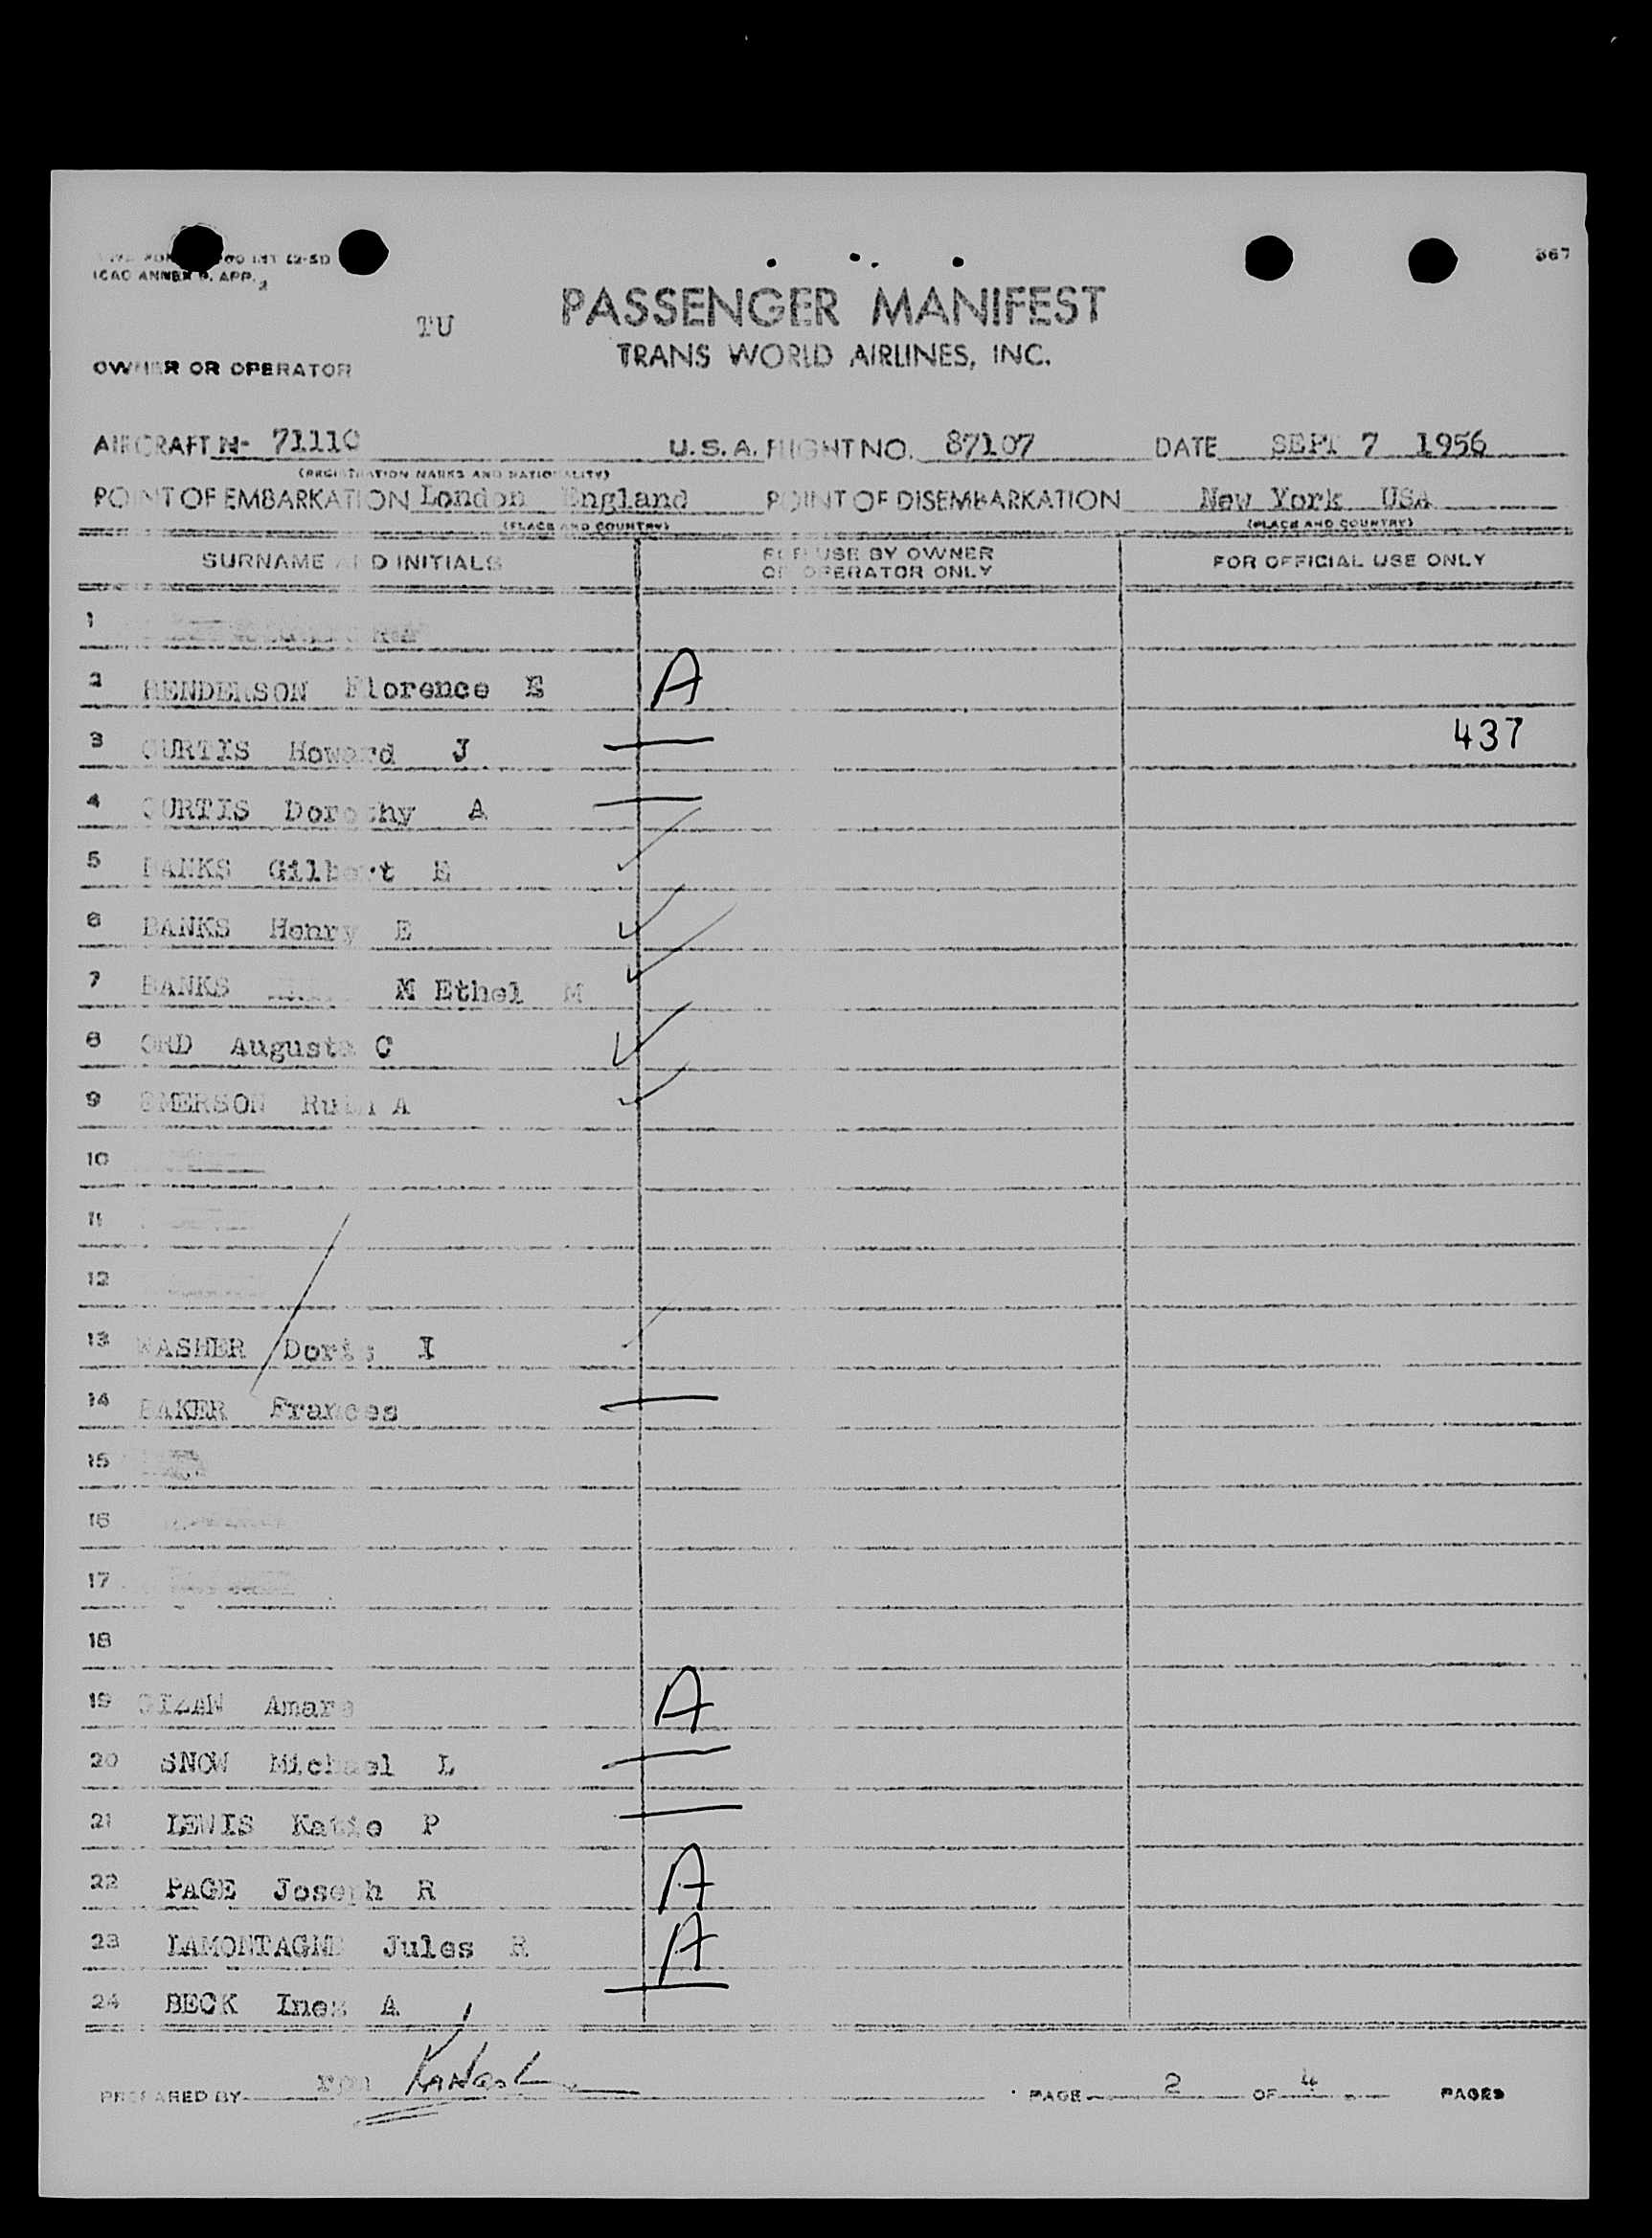 ICAO ANNEX 9, APP. 2
367
TU
PASSENGER MANIFEST
TRANS WORLD AIRLINES, INC.
OWNER OR OPERATOR
AIRCRAFT N- 7111C U.S.A. FLIGHT NO. 87107 DATE SEPT 7 1956
(REGISTRATION MARKS AND NATIONALITY)
POINT OF EMBARKATION London England POINT OF DISEMBARKATION New York USA
(PLACE AND COUNTRY) (PLACE AND COUNTRY)
SURNAME AND INITIALS FOR USE BY OWNER OR OPERATOR ONLY FOR OFFICIAL USE ONLY
1
2 HENDERSON Florence E A
3 CURTIS Howard J 437
4 CURTIS Dorothy A
5 BANKS Gilbert E
6 BANKS Henry E
7 BANKS M Ethel M
8 ORD Augusta C
9 OMERSON A
10
11
12
13 WASHER Doris I
14 BAKER Frances
15
16
17
18
19 Amare A
20 SNOW Michael L
21 LEWIS Katie P
22 PAGE Joseph R A
23 LAMONTAGNE Jules R A
24 BECK Inez A
PREPARED BY PAGE 2 OF 4 PAGES